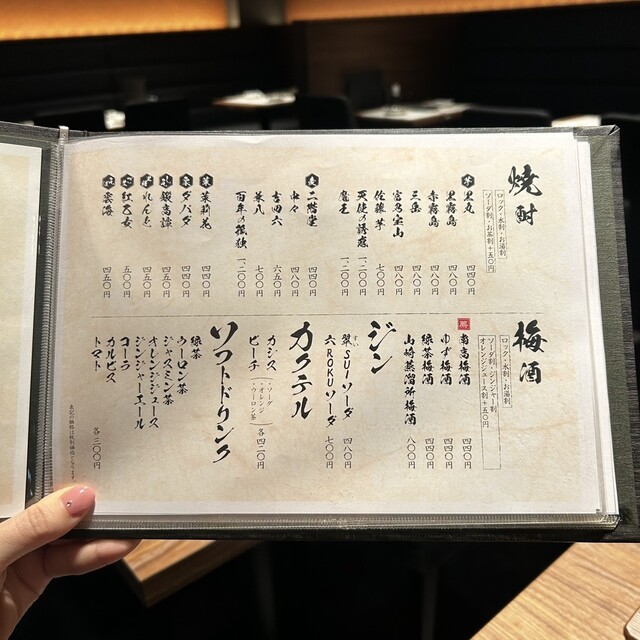 焼酎
ロック・水割・お湯割
ソーダ割・お茶割+五〇円
芋
黒丸 四四〇円
黒霧島 四八〇円
赤霧島 四八〇円
三岳 四八〇円
富乃宝山 四八〇円
佐藤 芋 七〇〇円
天使の誘惑 一、二〇〇円
魔王 一、二〇〇円
麦
二階堂 四四〇円
中々 四八〇円
吉四六 六五〇円
兼八 七〇〇円
百年の孤独 一、二〇〇円
茉莉花 四四〇円
ダバダ 四五〇円
鍛高譚 四五〇円
れんと 四五〇円
紅乙女 五〇〇円
雲海 四五〇円
梅酒
ロック・水割・お湯割
ソーダ割・ジンジャー割
オレンジジュース割+五〇円
南高梅酒 四四〇円
ゆず梅酒 四八〇円
緑茶梅酒 四四〇円
山崎蒸溜所梅酒 八〇〇円
ジン
翠SUIソーダ 四五〇円
六ROKUソーダ 七〇〇円
カクテル
カシス
ピーチ
(・ソーダ
・オレンジ
・ウーロン茶)
各 四二〇円
ソフトドリンク
緑茶
ウーロン茶
ジャスミン茶
オレンジジュース
ジンジャーエール
コーラ
カルピス
トマト
各 三〇〇円